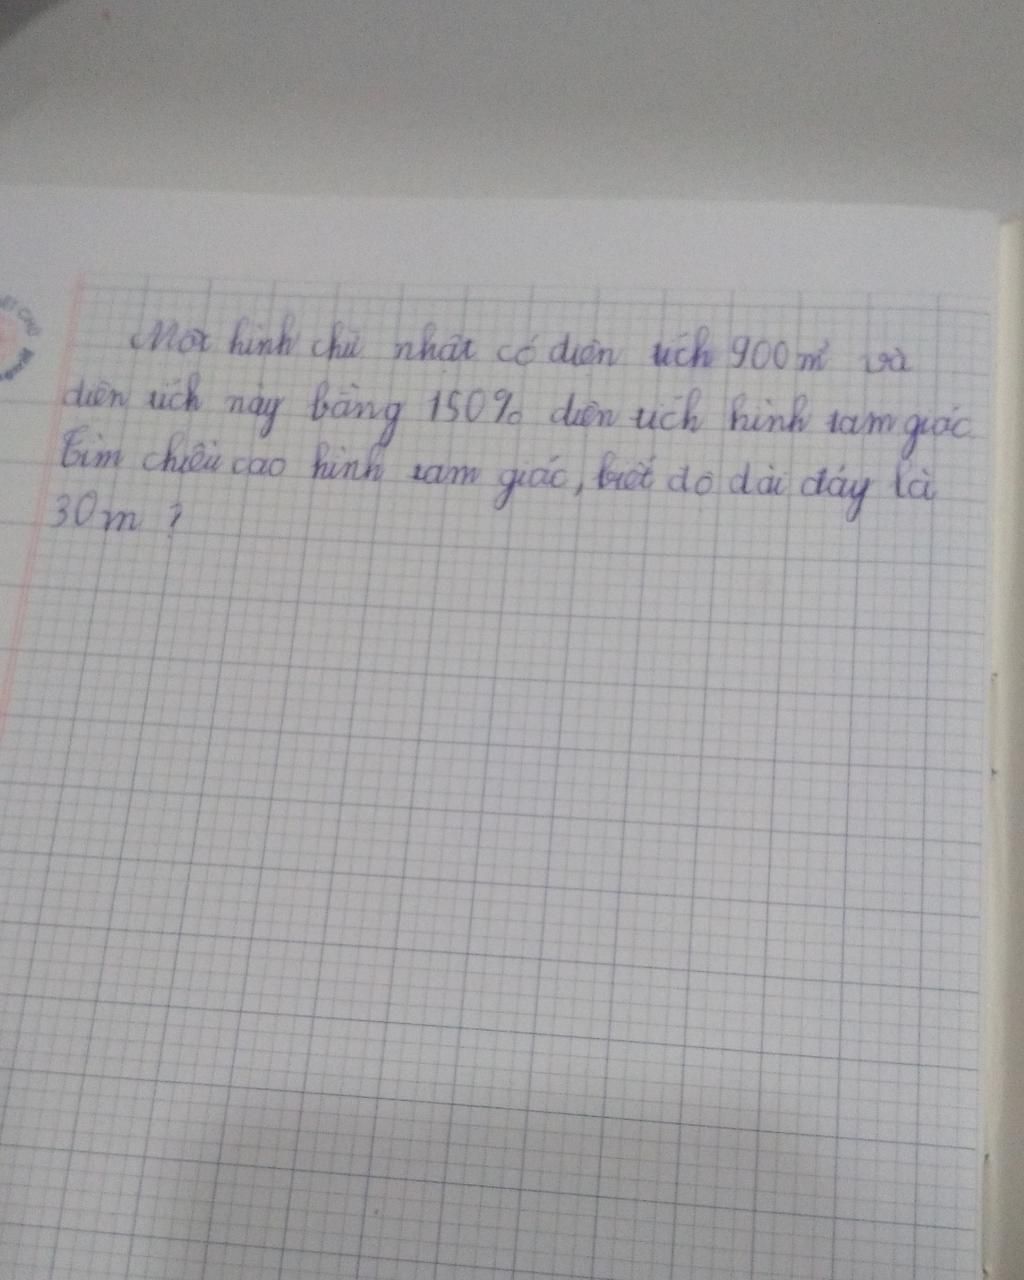 Một hình chữ nhật có diện tích 900m² và
diện tích này bằng 150% diện tích hình tam giác.
Tìm chiều cao hình tam giác, biết độ dài đáy là
30m ?